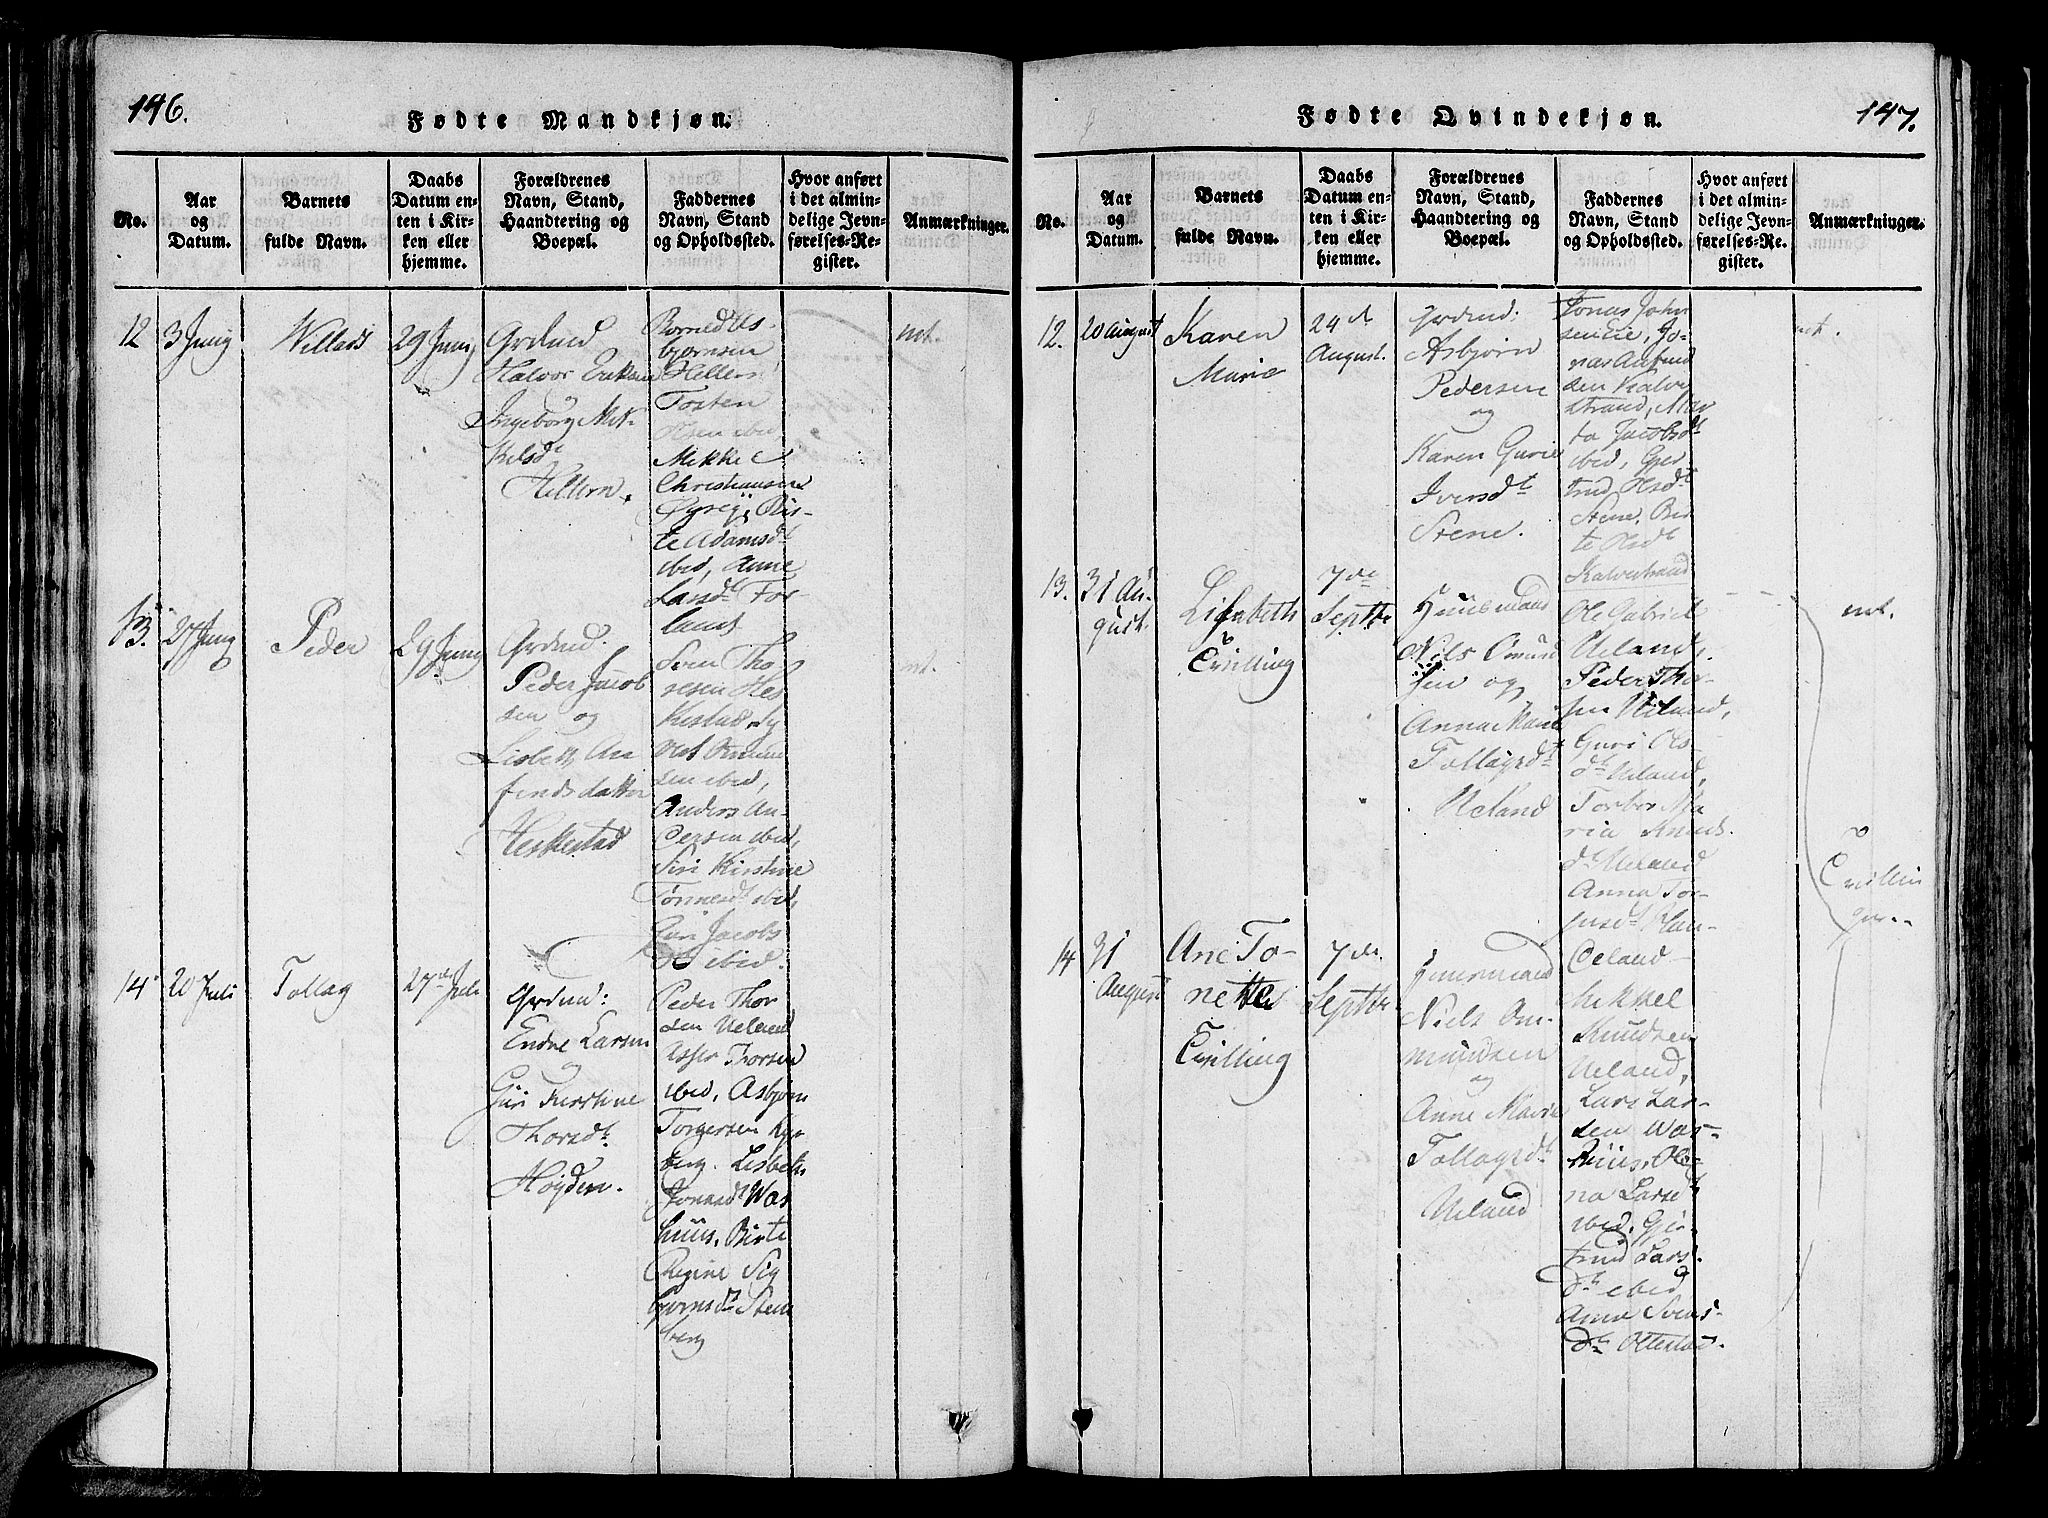 146.
Fødte Mandkjøn.
No.
Aar
og
Datum.
Barnets
fulde Navn.
Daabs
Datum en-
ten i Kir-
ken eller
hjemme.
Forældrenes
Navn, Stand,
Haandtering og
Boepæl.
Faddernes
Navn, Stand
og Opholdssted.
Hvor anført
i det almin-
delige Jevn-
førelses-Re-
gister.
Anmærkninger.
12
3 Junij
Willads
29 Junij
Grdmd
Halvor Eriksen
Ingeborg Mik-
kelsdt
Hellern.
Asbjørnsen
Hellern
Tosten
Olsen ibid,
Mikkel
Christiansen
Bir-
te Adamsdt
ibid, Anne
Larsdt For-
land
not.
13.
27 Junij
Peder
29 Junij
Grdmd:
Peder Jacob
sen og
Lisbeth An
findsdatter
Heskestad
Sven Tho
resen Hes
kestad,
Omund
sen ibid,
Anders An-
dersen ibid,
Siri Kirstine
Tønnesdt ibid,
Guri Jacobs
dt ibid.
nt.
14
20 Juli
Tollag
27de Juli
Grdmd:
Endre Larsen
og
Guri Kirstine
Thorsdt
Høyden.
Peder Thor
sen Ueland
Asser Thorsen
ibid, Asbjørn
Torgersen Kyl-
berg. Lisbeth
Jonasdt Was
huus, Birte
Regine Sig
bjørnsdt Sten
berg
147.
Fødte Qvindekjøn.
No.
Aar
og
Datum.
Barnets
fulde Navn.
Daabs
Datum en-
ten i Kir-
ken eller
hjemme.
Forældrenes
Navn, Stand,
Haandtering og
Boepæl.
Faddernes
Navn, Stand
og Opholdssted.
Hvor anført
i det almin-
delige Jevn-
førelses-Re-
gister.
Anmærkninger.
12.
20 August
Karen
Marie
24de
August.
Grdmd:
Asbjørn
Pedersen
og
Karen Gurie
Iversdt
Stene.
Jonas John
sen Eie, Jo-
nas Aafind
sen Kalve
strand, Mar
ta Jacobsdt
ibid, Gjer
trud Olsdt
Stene. Bir
te Olsdt
Kalvestrand
nt.
13.
31 Au-
gust.
Lisabeth
Tvilling
7de
Septbr
Huusmand
Niels Omund
sen og
Anna Marie
Tollagsdt
Ueland
Ole Gabriel
Ueland,
Peder Thor
sen Ueland,
Guri Ols-
dt Ueland,
Torbor Ma
ria Knuds.
dt Ueland
Anna Tor-
gersdt
Oeland
not.
Tvillin
ger.
14
31
August
Ane To-
nette
Tvilling
7de.
Septbr
Huusmand
Niels Om-
mundsen
og
Anne Marie
Tollagsdt
Ueland
Mikkel
Knudsen
Ueland,
Lars Lar-
sen Was-
huus, Ole-
na Larsdt
ibid, Gjer
trud Lars-
dt ibid
Anne Svens-
dt Ollestad.